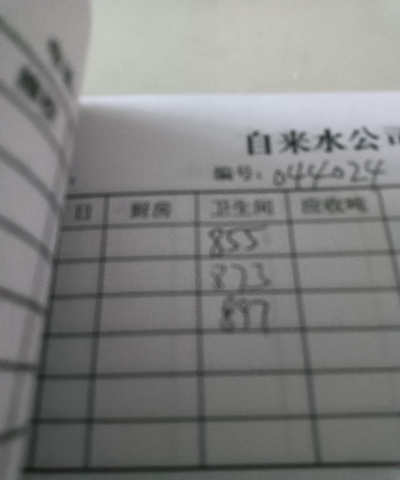 自来水公司
编号: 044024
日 厨房 卫生间 应收吨
855
873
897